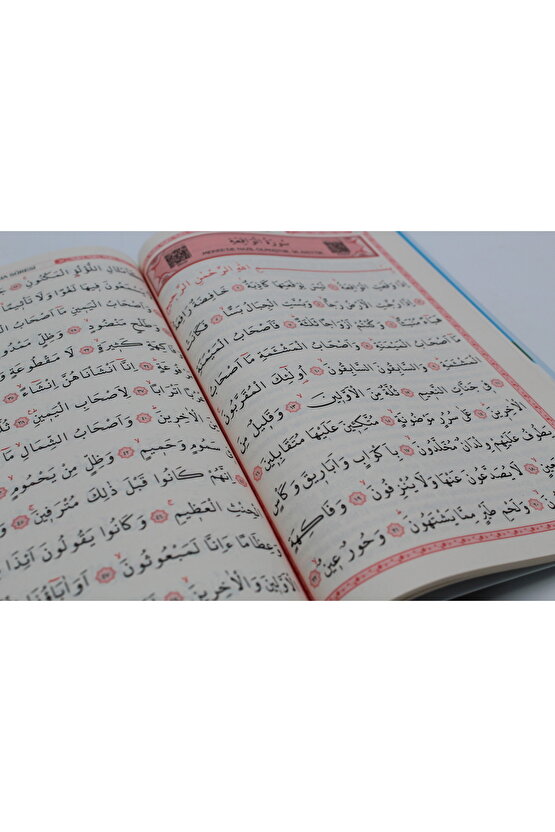 سُورَةُ الْوَاقِعَةِ
بِسْمِ اللّٰهِ الرَّحْمٰنِ الرَّحٖيمِ
اِذَا وَقَعَتِ الْوَاقِعَةُ ﴿١﴾ لَيْسَ لِوَقْعَتِهَا كَاذِبَةٌ ﴿٢﴾ خَافِضَةٌ رَافِعَةٌ
اِذَا رُجَّتِ الْاَرْضُ رَجًّا ﴿٤﴾ وَبُسَّتِ الْجِبَالُ بَسًّا ﴿٥﴾ فَكَانَتْ
هَبَٓاءً مُنْبَثًّا ﴿٦﴾ وَكُنْتُمْ اَزْوَاجًا ثَلٰثَةً ﴿٧﴾ فَاَصْحَابُ الْمَيْمَنَةِ
مَٓا اَصْحَابُ الْمَيْمَنَةِ ﴿٨﴾ وَاَصْحَابُ الْمَشْـَٔمَةِ مَٓا اَصْحَابُ
الْمَشْـَٔمَةِ ﴿٩﴾ وَالسَّابِقُونَ السَّابِقُونَ ﴿١٠﴾ اُولٰٓئِكَ الْمُقَرَّبُونَ
فٖى جَنَّاتِ النَّعٖيمِ ﴿١٢﴾ ثُلَّةٌ مِنَ الْاَوَّلٖينَ ﴿١٣﴾ وَقَلٖيلٌ مِنَ
الْاٰخِرٖينَ ﴿١٤﴾ عَلٰى سُرُرٍ مَوْضُونَةٍ ﴿١٥﴾ مُتَّكِـٖٔينَ عَلَيْهَا مُتَقَابِلٖينَ ﴿١٦﴾
يَطُوفُ عَلَيْهِمْ وِلْدَانٌ مُخَلَّدُونَ ﴿١٧﴾ بِاَكْوَابٍ وَاَبَارٖيقَ وَكَاْسٍ
لَا يُصَدَّعُونَ عَنْهَا وَلَا يُنْزِفُونَ ﴿١٩﴾ وَفَاكِهَةٍ
وَلَحْمِ طَيْرٍ مِمَّا يَشْتَهُونَ ﴿٢١﴾ وَحُورٌ عٖينٌ ﴿٢٢﴾
SÛRESİ
كَاَمْثَالِ اللُّؤْلُؤِ الْمَكْنُونِ
يَسْمَعُونَ فٖيهَا لَغْوًا وَلَا تَاْثٖيمًا
وَطَلْحٍ مَنْضُودٍ ﴿٢٩﴾ وَظِلٍّ
كَثٖيرَةٍ ﴿٣٢﴾ لَا مَقْطُوعَةٍ
اِنَّٓا اَنْشَاْنَاهُنَّ اِنْشَٓاءً ﴿٣٥﴾
اَتْرَابًا ﴿٣٧﴾ لِاَصْحَابِ الْيَمٖينِ
الْاٰخِرٖينَ ﴿٤٠﴾ وَاَصْحَابُ الشِّمَالِ مَٓا
سَمُومٍ وَحَمٖيمٍ ﴿٤٢﴾ وَظِلٍّ مِنْ يَحْمُومٍ ﴿٤٣﴾
اِنَّهُمْ كَانُوا قَبْلَ ذٰلِكَ مُتْرَفٖينَ ﴿٤٥﴾
الْحِنْثِ الْعَظٖيمِ ﴿٤٦﴾ وَكَانُوا يَقُولُونَ اَئِذَا
وَعِظَامًا ءَاِنَّا لَمَبْعُوثُونَ ﴿٤٧﴾ اَوَاٰبَٓاؤُنَا
الْاَوَّلٖينَ وَالْاٰخِرٖينَ ﴿٤٩﴾